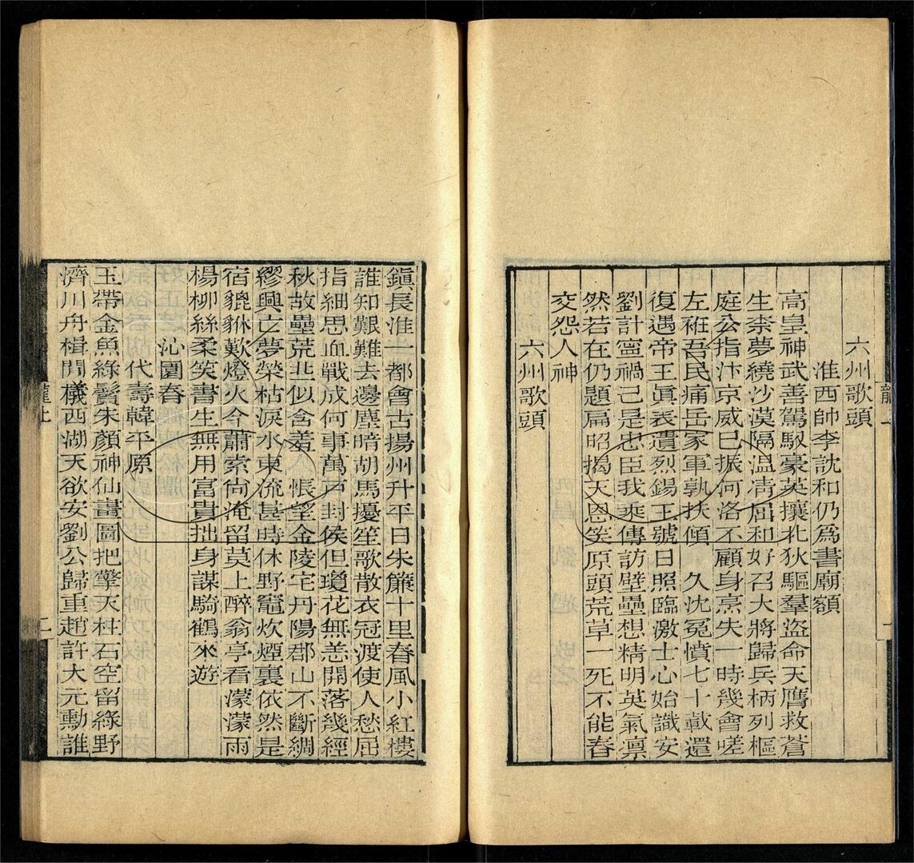 六州歌頭
淮西帥李訦和仍爲書廟額
高皇神武善駕馭豪英攘北狄驅羣盜命天膺救蒼
生柰夢繞沙漠隔溫凊屈和好召大將歸兵柄列樞
庭公指汴京威已振何洛不顧身烹失一時幾會嗟
左袵吾民痛岳家軍孰扶傾　久沈冤憤七十載還
復遇帝王眞表遺烈錫王號日照臨激士心始識安
劉計寧禍己是忠臣我乘傳訪壁壘想精明英氣凛
然若在仍題扁昭揭天恩笑原頭荒草一死不能春
交怨人神
六州歌頭
鎮長淮一都會古揚州升平日朱簾十里春風小紅樓
誰知艱難去邊塵暗胡馬擾笙歌散衣冠渡使人愁屈
指細思血戰成何事萬戸封侯但瓊花無恙開落幾經
秋故壘荒丘似含羞　悵望金陵宅丹陽郡山不斷綢
繆興亡夢榮枯淚水東流甚時休野竈炊煙裏依然是
宿貔貅歎燈火今蕭索尙淹留莫上醉翁亭看濛濛雨
楊柳絲柔笑書生無用富貴拙身謀騎鶴來遊
沁園春
代壽韓平原
玉帶金魚綠鬢朱顏神仙畫圖把擎天柱石空留綠野
濟川舟楫閒艤西湖天欲安劉公歸重趙許大元勳誰
龍上
二